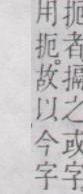 扼者搹之或字
用扼。故以今字